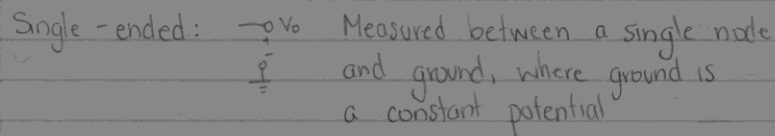 Single-ended: Vo Measured between a single node
+
-
and ground, where ground is
a constant potential